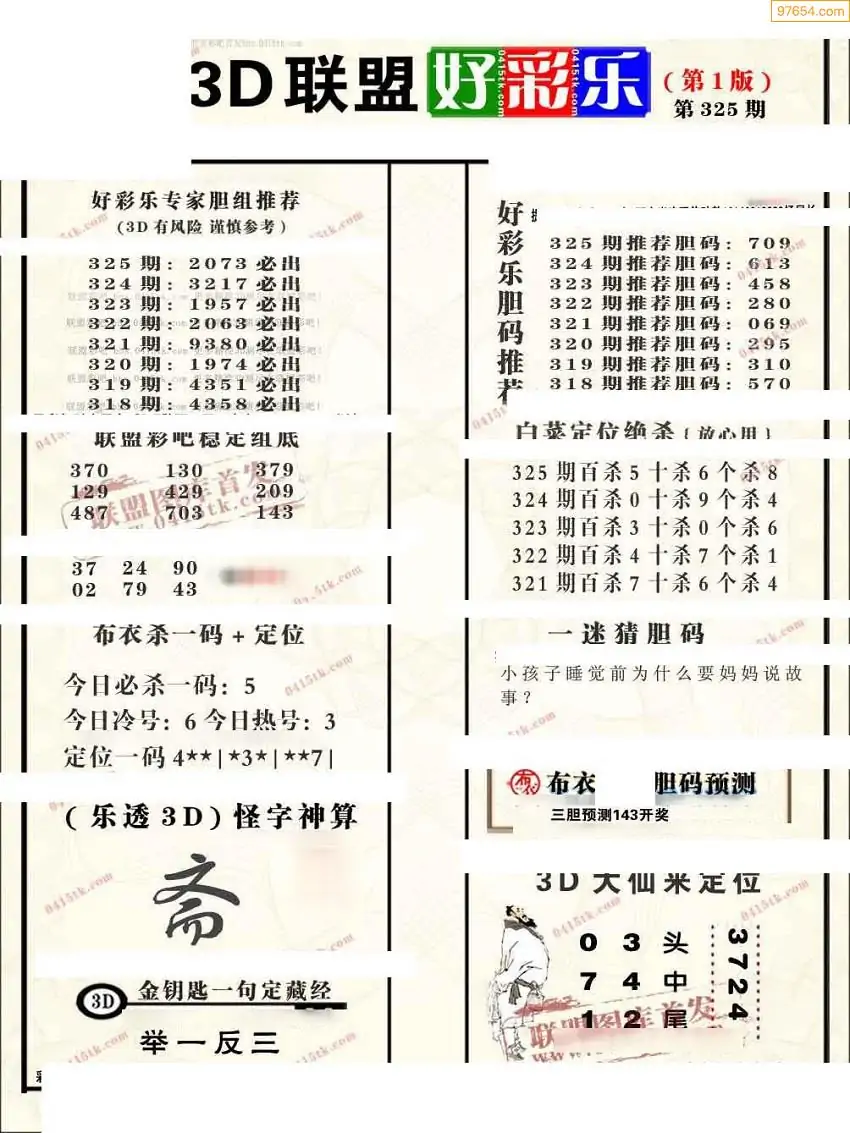 97654.com
3D联盟好彩乐(第1版)
第325期
好彩乐专家胆组推荐
(3D有风险 谨慎参考)
325期:2073必出
324期:3217必出
323期:1957必出
322期:2063必出
321期:9380必出
320期:1974必出
319期:4351必出
318期:4358必出
联盟彩吧稳定组底
370 130 379
129 429 209
487 703 143
37 24 90
02 79 43
布衣杀一码+定位
今日必杀一码:5
今日冷号:6 今日热号:3
定位一码4**|*3*|**7|
(乐透3D)怪字神算
斋
3D 金钥匙一句定藏经
举一反三
好彩乐胆码推荐
325期推荐胆码:709
324期推荐胆码:613
323期推荐胆码:458
322期推荐胆码:280
321期推荐胆码:069
320期推荐胆码:295
319期推荐胆码:310
318期推荐胆码:570
白菜定位绝杀{放心用}
325期百杀5十杀6个杀8
324期百杀0十杀9个杀4
323期百杀3十杀0个杀6
322期百杀4十杀7个杀1
321期百杀7十杀6个杀4
一迷猜胆码
小孩子睡觉前为什么要妈妈说故
事?
布衣 胆码预测
三胆预测143开奖
3D大仙来定位
0 3 头
7 4 中
1 2 尾
3724
联盟图库首发
www.0415tk.com
0415tk.com